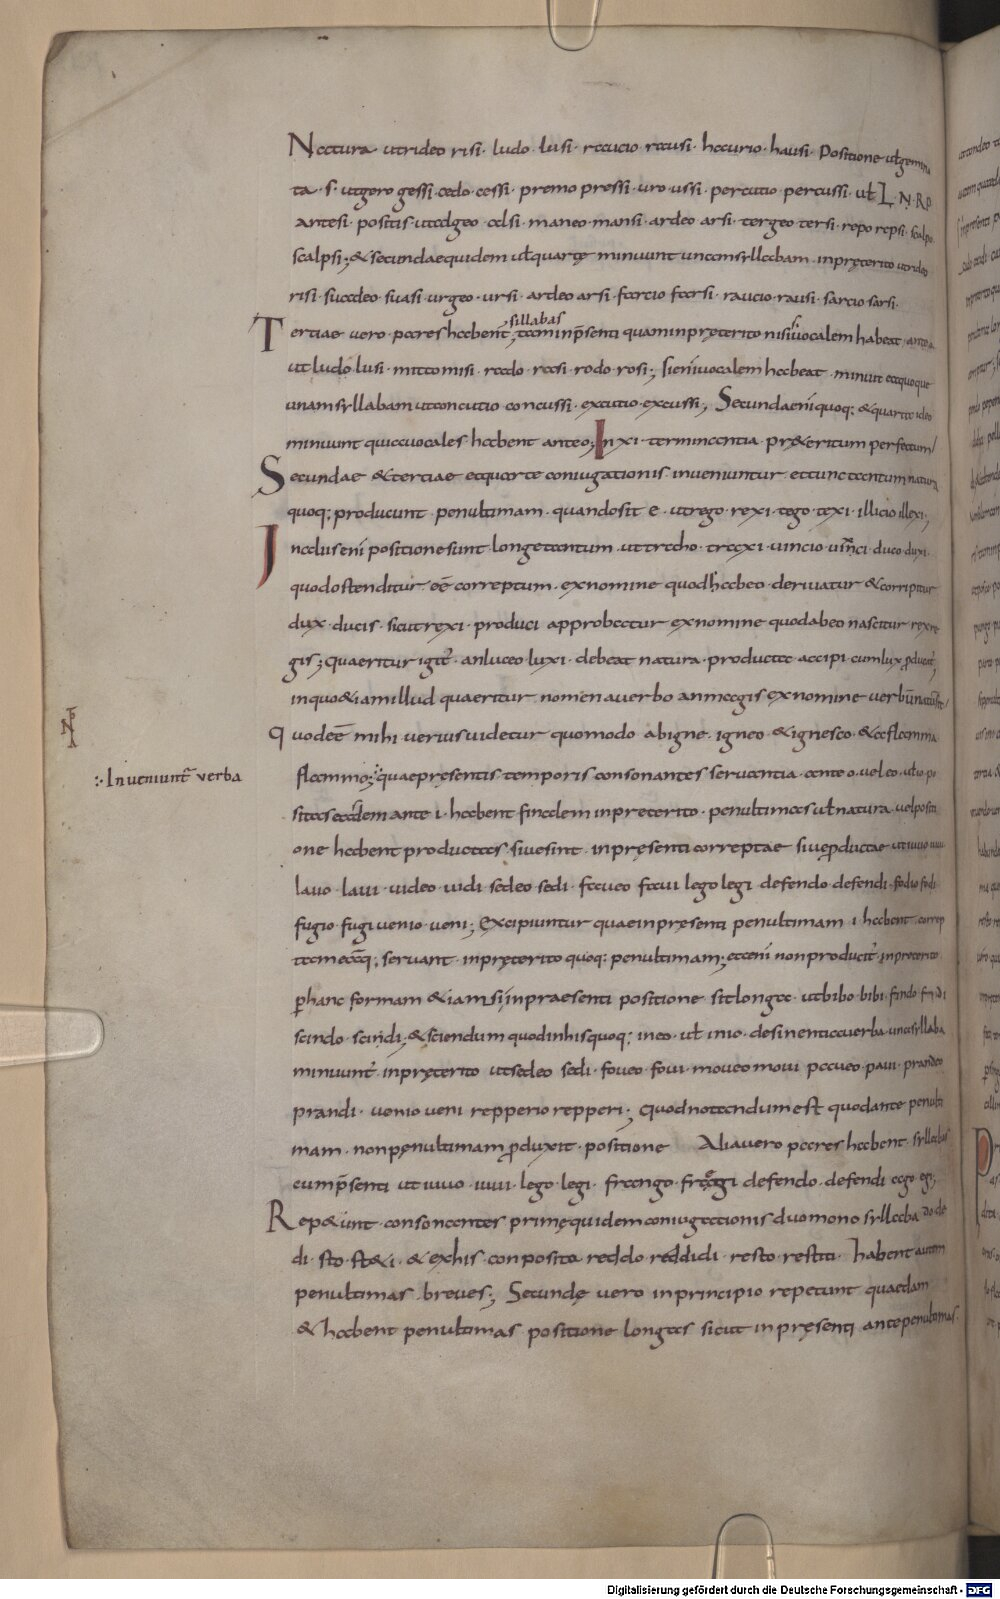 Natura ut rideo risi · ludo · lusi · raucio · rausi · haurio · hausi · Positione ut gemina
ta · s · ut gero gessi · cedo · cessi · premo pressi · uro · ussi · percutio · percussi · ut L · N · R p
antesi · positis ut algeo · alsi · maneo · mansi · ardeo arsi · tergeo · tersi · repo repsi · scalpo
scalpsi; & secundae quidem ut quartę minuunt unam syllabam · in pręterito ut rideo
risi · suadeo · suasi · urgeo · ursi · ardeo arsi · farcio farsi · raucio · rausi · sarcio sarsi ·
Tertiae vero · pares habent sillabas tam in p̄senti quam in pręterito nisi vocalem habeat ante o
ut ludo lusi · mitto misi · rado · rasi · rodo · rosi; si eni vocalem habeat · minuit aequoque
unam syllabam ut concutio concussi · excutio · excussi; Secundae eni quoq: & quartae ideo
minuunt quia vocales habent ante o; In xi · terminantia · pr&eritum perfectum
Secundae & tertiae & quarte coniugationis inveniuntur · et tunc tantum natura
quoq: producunt penultimam · quando sit e · ut rego · rexi · tego · texi · illicio illexi;
In aliis eni positione sunt longe tantum · ut traho · traxi · vincio · vinci · duco · duxi ·
quod ostenditur · eē correptum · ex nomine quod habeo · derivatur & corripitur
dux · ducis · sicut rexi · produci approbatur ex nomine quod abeo nascitur rex re
gis; quaeritur igit̄ · an luceo luxi · debeat natura · producta accipi · cum lux p̄ducat̄;
in quo & iam illud quaeritur nomen a verbo an magis ex nomine verbū natū sit
quod eē mihi verius videtur quomodo ab igne · igneo · & ignesco · & a flamma
flammo; quae presentis temporis consonantes servantia · ante o · vel eo · ut io · po
:· Inveniunt̄ verba
sitas easdem ante i · habent finalem in preterito · penultimas ut natura · vel positi
one habent productas · sive sint · in pręsenti correptae sive p̄ductae ut iuvo iuvi
lavo · lavi · video · vidi · sedeo · sedi · faveo · favi lego legi · defendo · defendi · fodio fodi
fugio · fugi venio · veni; Excipiuntur quae in pręsenti penultimam i habent · correp
tam eāq: servant · in pręterito quoq: penultimam; eteni non producit̄ in preterito
p hanc formam & iam si in praesenti positione sit longa · ut bibo · bibi · findo · fidi
scindo · scindi; & sciendum quod in his quoq: in eo · ut in io · desinentia verba · una syllaba
minuunt̄ in pręterito ut sedeo sedi · foveo · fovi · moveo movi paveo · pavi · prandeo
prandi · venio veni repperio repperi; Quod notandum est quod ante penulti
mam · non penultimam p̄duxit · positione Alia vero pares habent · syllabas
cum p̄senti ut iuvo · iuvi · lego · legi · frango · fregi defendo · defendi · ago · egi;
Rep&unt · consonantes primę quidem coniugationis duo mono syllaba do de
di · sto · st&i · & ex his · composita reddo reddidi · resto · restiti · habent autem
penultimas breves; Secundę vero in principio repetunt quaedam
& habent penultimas positione longas sicut in pręsenti antepenultimas ·
Digitalisierung gefördert durch die Deutsche Forschungsgemeinschaft - DFG